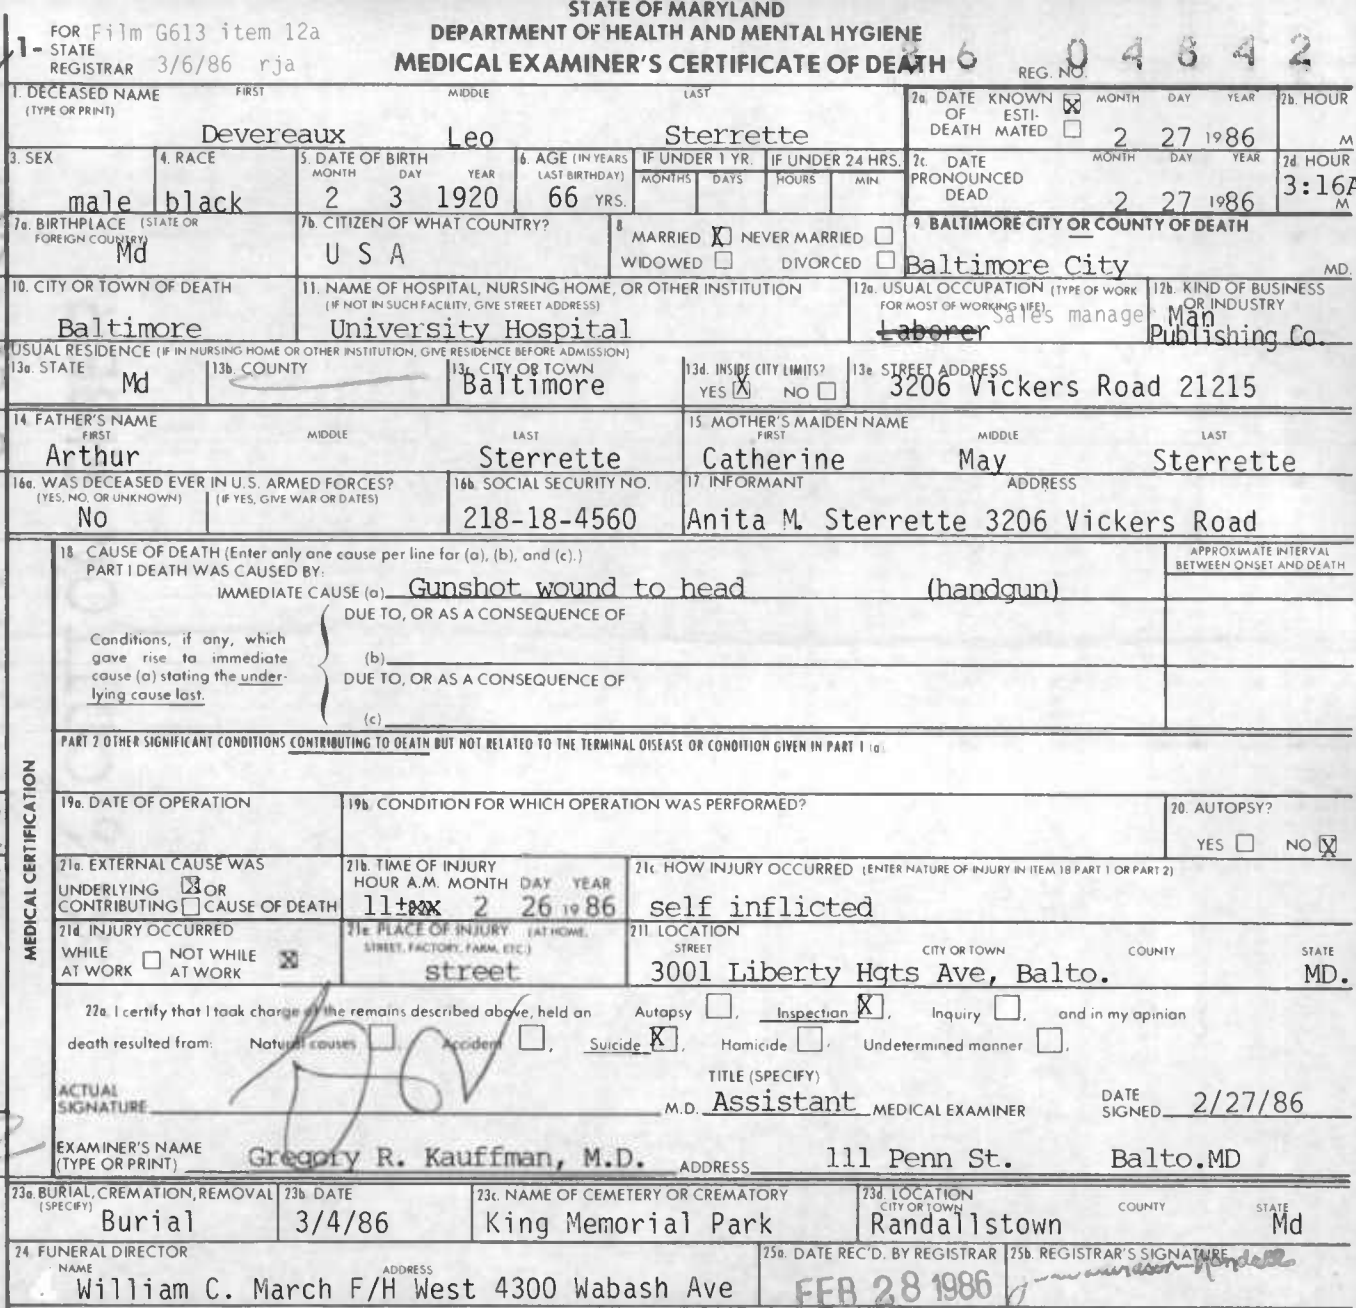 STATE OF MARYLAND
DEPARTMENT OF HEALTH AND MENTAL HYGIENE
MEDICAL EXAMINER'S CERTIFICATE OF DEATH
FOR STATE REGISTRAR
Film G613 item 12a
3/6/86 rja
1-
86 04842
REG. NO.
1. DECEASED NAME (TYPE OR PRINT) FIRST MIDDLE LAST
Devereaux Leo Sterrette
2a DATE OF DEATH KNOWN X ESTIMATED MONTH DAY YEAR
2 27 1986
2b. HOUR M
3. SEX
male
4. RACE
black
5. DATE OF BIRTH MONTH DAY YEAR
2 3 1920
6. AGE (IN YEARS LAST BIRTHDAY)
66 YRS.
IF UNDER 1 YR. MONTHS DAYS
IF UNDER 24 HRS. HOURS MIN
2c. DATE PRONOUNCED DEAD MONTH DAY YEAR
2 27 1986
2d HOUR
3:16A M
7a. BIRTHPLACE (STATE OR FOREIGN COUNTRY)
Md
7b. CITIZEN OF WHAT COUNTRY?
U S A
8 MARRIED X NEVER MARRIED
WIDOWED DIVORCED
9. BALTIMORE CITY OR COUNTY OF DEATH
Baltimore City MD.
10. CITY OR TOWN OF DEATH
Baltimore
11. NAME OF HOSPITAL, NURSING HOME, OR OTHER INSTITUTION
(IF NOT IN SUCH FACILITY, GIVE STREET ADDRESS)
University Hospital
12a. USUAL OCCUPATION (TYPE OF WORK FOR MOST OF WORKING LIFE)
Sales manager
Laborer
12b. KIND OF BUSINESS OR INDUSTRY
Man
Publishing Co.
USUAL RESIDENCE (IF IN NURSING HOME OR OTHER INSTITUTION, GIVE RESIDENCE BEFORE ADMISSION)
13a. STATE
Md
13b. COUNTY
13c. CITY OR TOWN
Baltimore
13d. INSIDE CITY LIMITS?
YES X NO
13e STREET ADDRESS
3206 Vickers Road 21215
14. FATHER'S NAME FIRST MIDDLE LAST
Arthur Sterrette
15. MOTHER'S MAIDEN NAME FIRST MIDDLE LAST
Catherine May Sterrette
16a. WAS DECEASED EVER IN U.S. ARMED FORCES?
(YES, NO, OR UNKNOWN) (IF YES, GIVE WAR OR DATES)
No
16b. SOCIAL SECURITY NO.
218-18-4560
17. INFORMANT ADDRESS
Anita M. Sterrette 3206 Vickers Road
MEDICAL CERTIFICATION
18 CAUSE OF DEATH (Enter only one cause per line for (a), (b), and (c).)
PART I DEATH WAS CAUSED BY:
IMMEDIATE CAUSE (a) Gunshot wound to head (handgun)
APPROXIMATE INTERVAL BETWEEN ONSET AND DEATH
DUE TO, OR AS A CONSEQUENCE OF
Conditions, if any, which gave rise to immediate cause (a) stating the underlying cause last.
(b)
DUE TO, OR AS A CONSEQUENCE OF
(c)
PART 2 OTHER SIGNIFICANT CONDITIONS CONTRIBUTING TO DEATH BUT NOT RELATED TO THE TERMINAL DISEASE OR CONDITION GIVEN IN PART 1 (a)
19a. DATE OF OPERATION
19b. CONDITION FOR WHICH OPERATION WAS PERFORMED?
20. AUTOPSY?
YES NO X
21a. EXTERNAL CAUSE WAS
UNDERLYING X OR
CONTRIBUTING CAUSE OF DEATH
21b. TIME OF INJURY
HOUR A.M. MONTH DAY YEAR
11± 2 26 1986
21c HOW INJURY OCCURRED (ENTER NATURE OF INJURY IN ITEM 18 PART 1 OR PART 2)
self inflicted
21d INJURY OCCURRED
WHILE AT WORK NOT WHILE AT WORK X
21e PLACE OF INJURY (AT HOME, STREET, FACTORY, FARM, ETC.)
street
21f. LOCATION
STREET CITY OR TOWN COUNTY STATE
3001 Liberty Hgts Ave, Balto. MD.
22a. I certify that I took charge of the remains described above, held an Autopsy , Inspection X , Inquiry , and in my opinion
death resulted from: Natural causes , Accident , Suicide X , Homicide , Undetermined manner .
ACTUAL SIGNATURE M.D.
TITLE (SPECIFY)
Assistant MEDICAL EXAMINER
DATE SIGNED 2/27/86
EXAMINER'S NAME (TYPE OR PRINT) Gregory R. Kauffman, M.D. ADDRESS 111 Penn St. Balto.MD
23a. BURIAL, CREMATION, REMOVAL (SPECIFY)
Burial
23b. DATE
3/4/86
23c. NAME OF CEMETERY OR CREMATORY
King Memorial Park
23d. LOCATION CITY OR TOWN COUNTY STATE
Randallstown Md
24. FUNERAL DIRECTOR
NAME ADDRESS
William C. March F/H West 4300 Wabash Ave
25a. DATE REC'D. BY REGISTRAR
FEB 28 1986
25b. REGISTRAR'S SIGNATURE